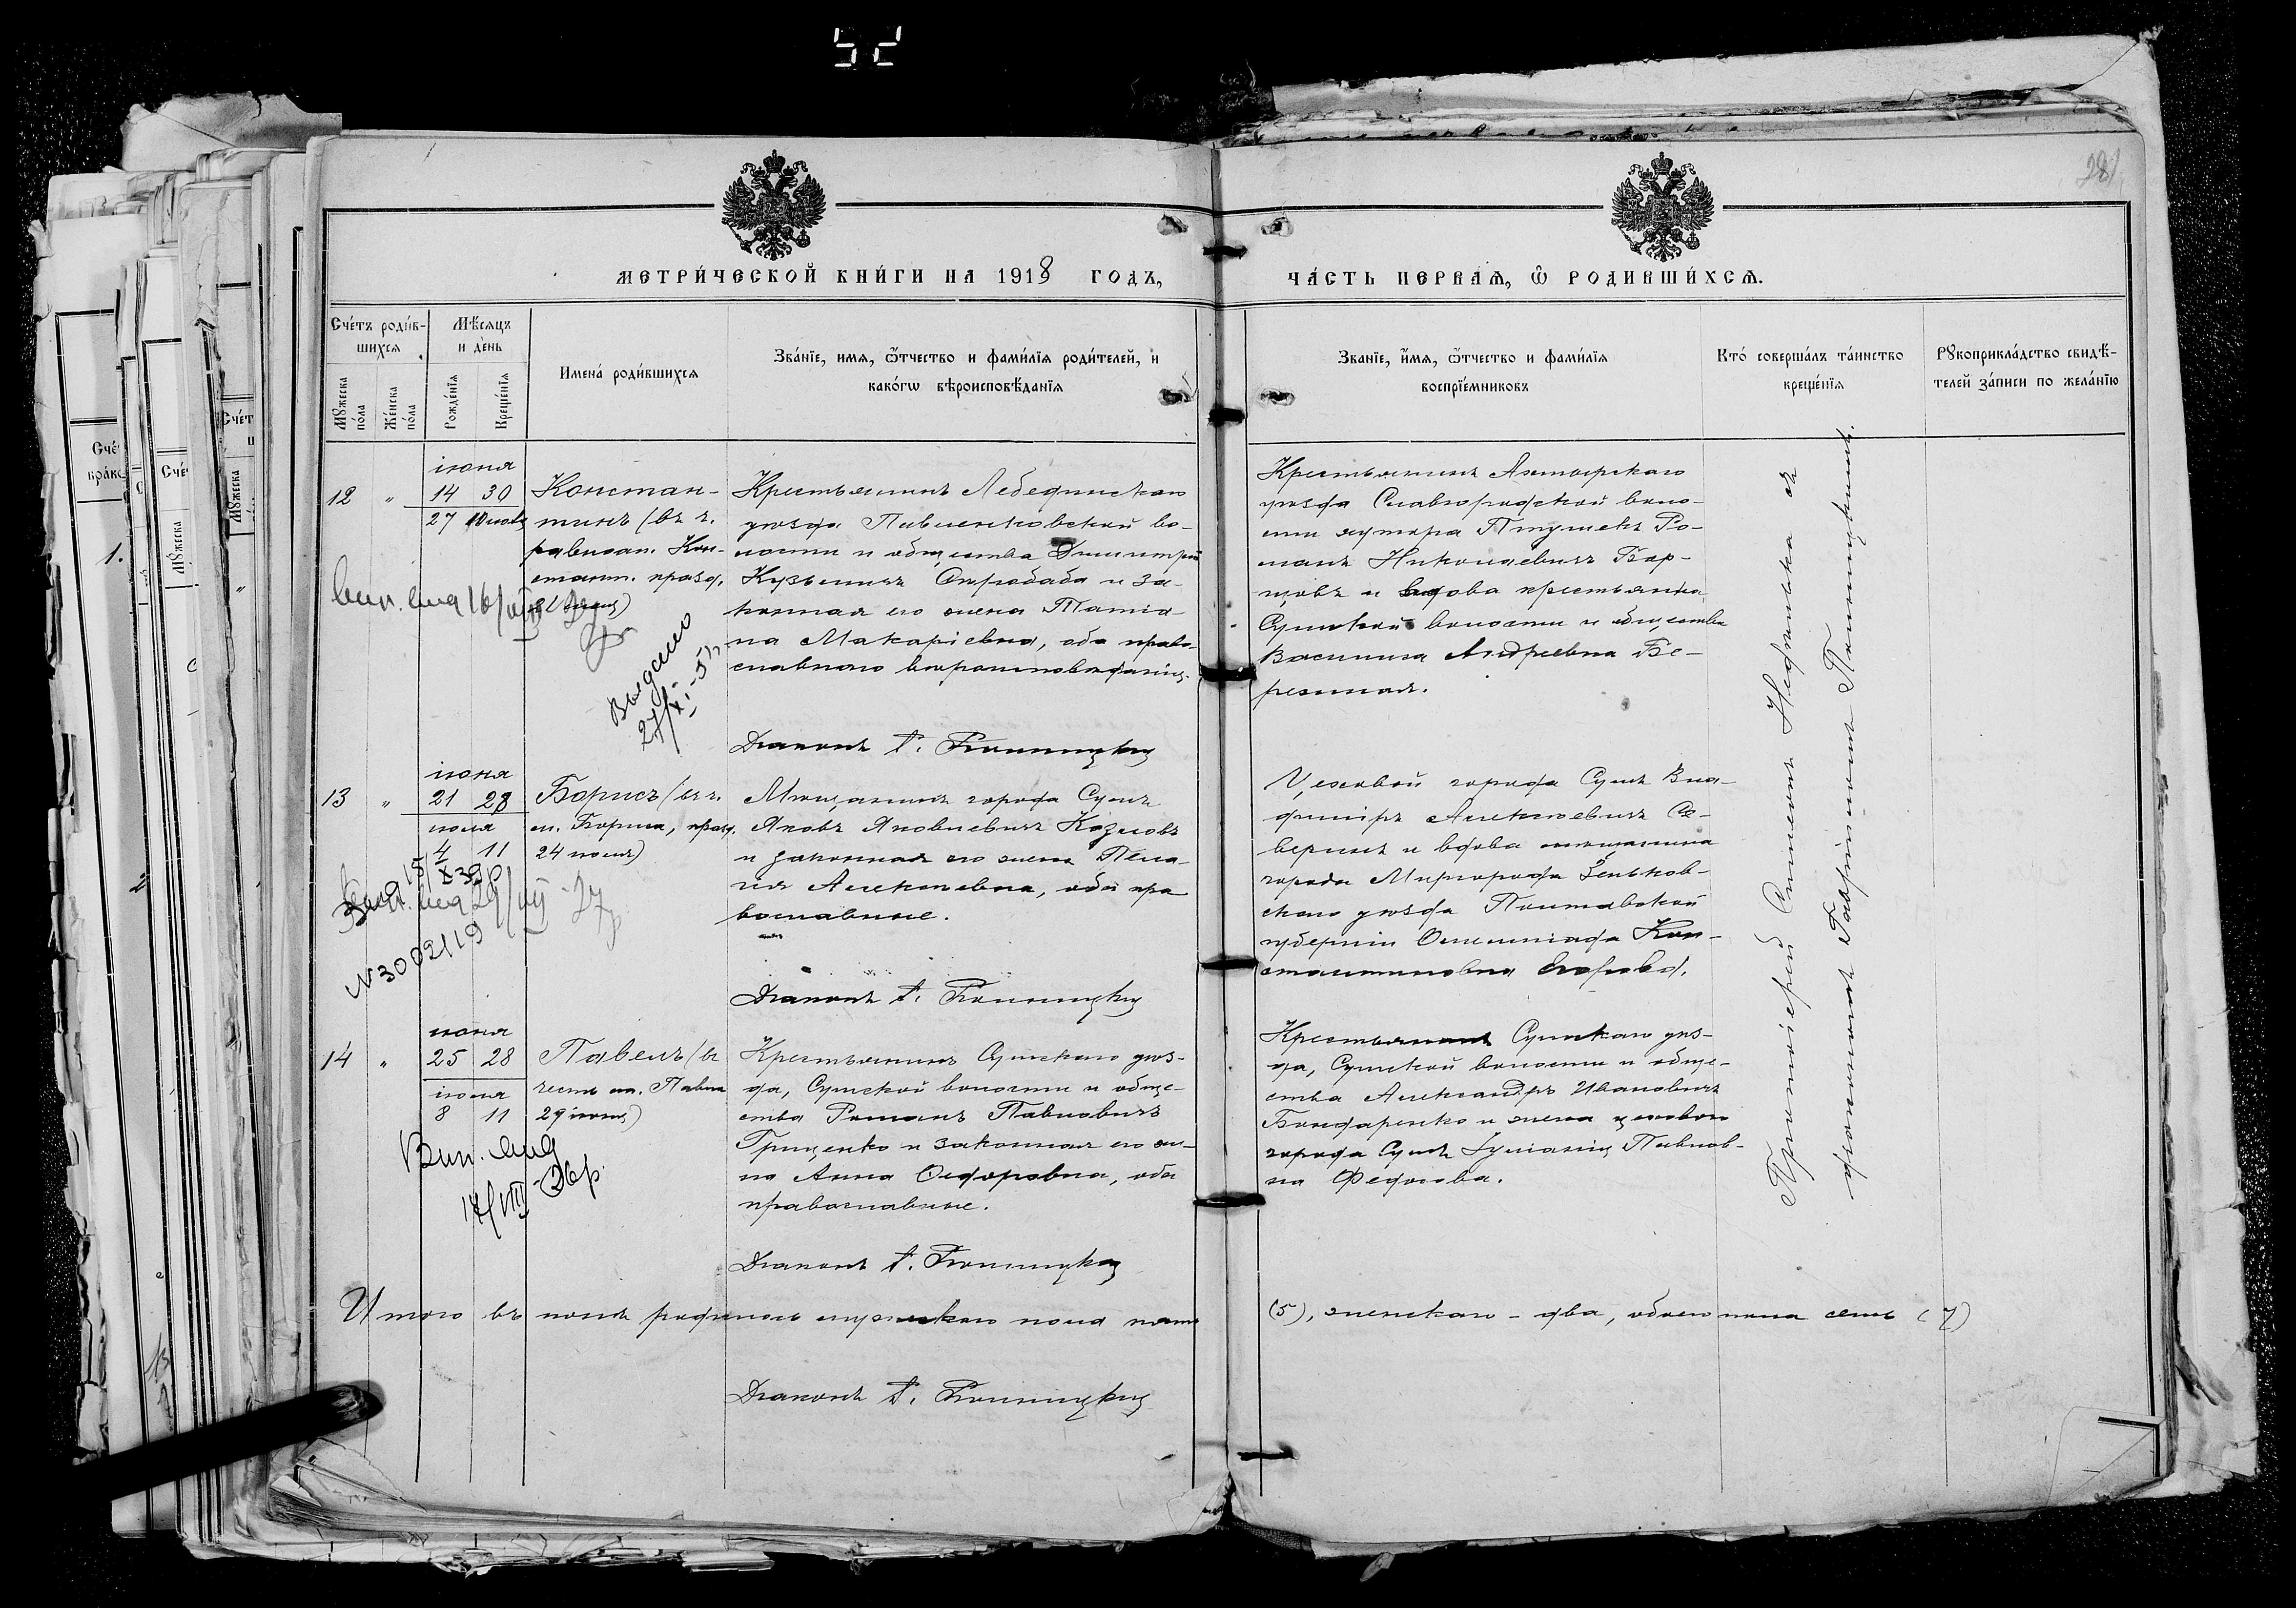 52
281
МЕТРИ́ЧЕСКОЙ КНИ́ГИ НА 1918 ГОДЪ,
ЧА́СТЬ ПЕРВАЯ, Ѡ РОДИВШИ́ХСЯ.
Сче́тъ роди́в-
шихся
Мꙋжеска по́ла
Же́нска по́ла
Мѣ́сяцъ
и де́нь
Рожде́нїя
Креще́нїя
Имена́ роди́вшихся
Зва́нїе, имя, ѿтчество и фами́лїя роди́телей, и
како́гѡ вѣроисповѣ́данїя
Званїе, и́мя, ѿтчество и фами́лїя
воспрїе́мниковъ
Кто́ соверша́лъ та́инство
креще́нїя
Рꙋкоприкла́дство свидѣ́-
телей за́писи по жела́нїю
12 "
іюня
14 30
27
Констан-
тинъ (въ ч.
равноап. Кон-
стант. празд.
Крестьянинъ Лебединскаго
уѣзда Павленковской во-
лости и общества Димитрій
Кузьминъ Скробаба и за-
конная его жена Татіа-
на Макаріевна, оба право-
славного вѣроисповѣданія.
Діаконъ Г.
Выдано
Крестьянинъ Ахтырскаго
уѣзда Славгородской воло-
сти хутора Птушекъ Ро-
манъ Николаевичъ Бор-
цовъ и вдова крестьянка
Сумской волости и общества
Василиса Андреевна Бе-
резная.
13 "
іюня
21 28
іюля
4 11
Борисъ (въ ч.
м. Бориса, празд.
24 іюля)
Мѣщанинъ города Сумъ
Яковъ Яковлевичъ Козловъ
и законная его жена Пела-
гія Алексѣевна, оба пра
вославные.
Діаконъ Г.
№3002119
Цеховой города Сумъ Вла-
диміръ Алексѣевичъ Се-
веринъ и вдова мѣщанина
города Миргорода Зеньков-
скаго уѣзда Полтавской
губерніи Олимпіада Кон-
стантиновна Егорова.
14 "
іюня
25 28
іюля
8 11
Павелъ (въ
честь ап. Павла
29 іюня)
Крестьянинъ Сумскаго уѣз-
да, Сумской волости и обще-
ства Романъ Павловичъ
Гриценко и законная его же-
на Анна Ѳедоровна, оба
православные.
Діаконъ Г.
Крестьянинъ Сумскаго уѣз-
да, Сумской волости и обще-
ства Александръ Ивановичъ
Бондаренко и жена цехового
города Сумъ Іуліанія Павлов-
на Федосова.
Протоіерей Симеонъ съ
діакономъ
Итого въ іюнѣ родилось мужескаго пола пять
(5), женскаго - два, обоего пола семь (7)
Діаконъ Г.